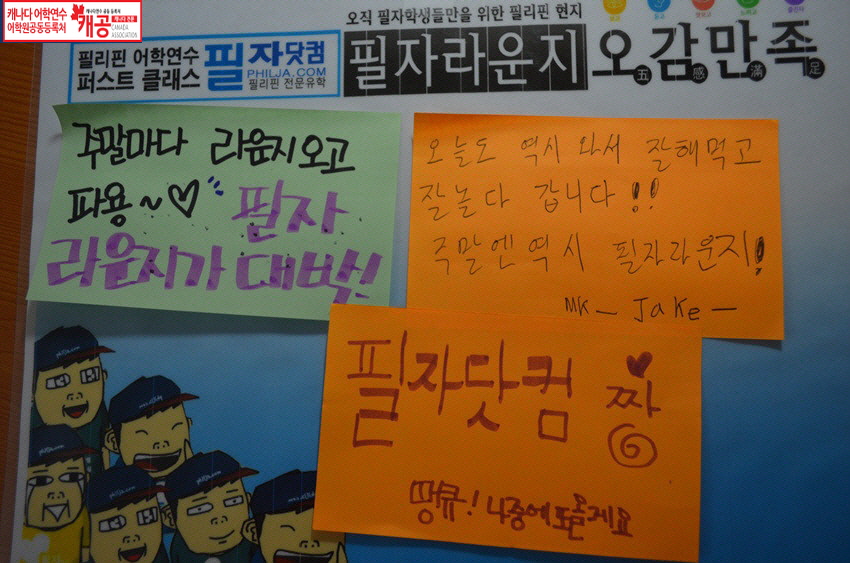 캐나다 어학연수
어학원공동등록처
캐나다어학연수 공동 등록처
개공
캐나다 전문
CANADA
ASSOCIATION
오직 필자학생들만을 위한 필리핀 현지
필리핀 어학연수
퍼스트 클래스
필자닷컴
PHILJA.COM
필리핀 전문유학
필자라운지
오감만족
五感滿足
주말마다 라운지오고
파용~♡ 필자
라운지가 대박!
오늘도 역시 와서 잘해먹고
잘놀다 갑니다!!
주말엔역시 필자라운지!
MK - Jake -
필자닷컴 짱
땡큐! 나중에또올게요